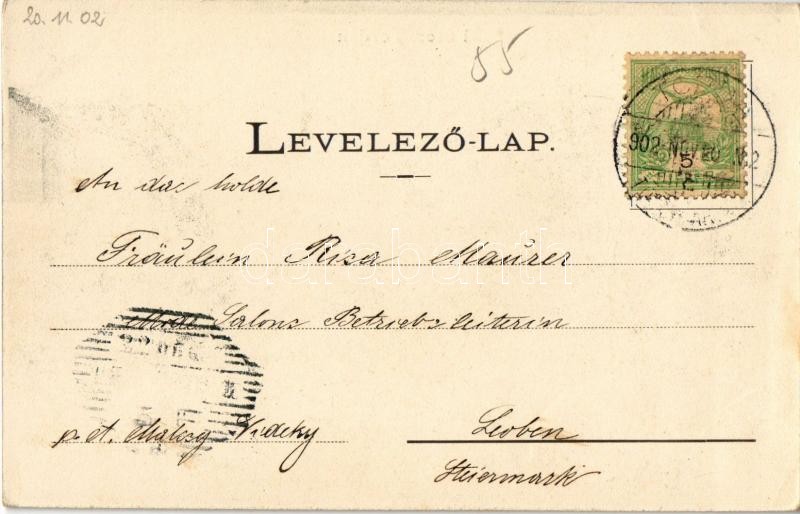 20.11.02
55
LEVELEZŐ-LAP.
902 NOV 20
5
An das holde
Fräulein Risa Maurer
Mode Salons Betriebsleiterin
p. A. Videky
Leoben
Steiermark
darabanth